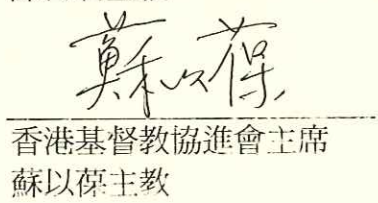 蘇以葆
香港基督教協進會主席
蘇以葆主教